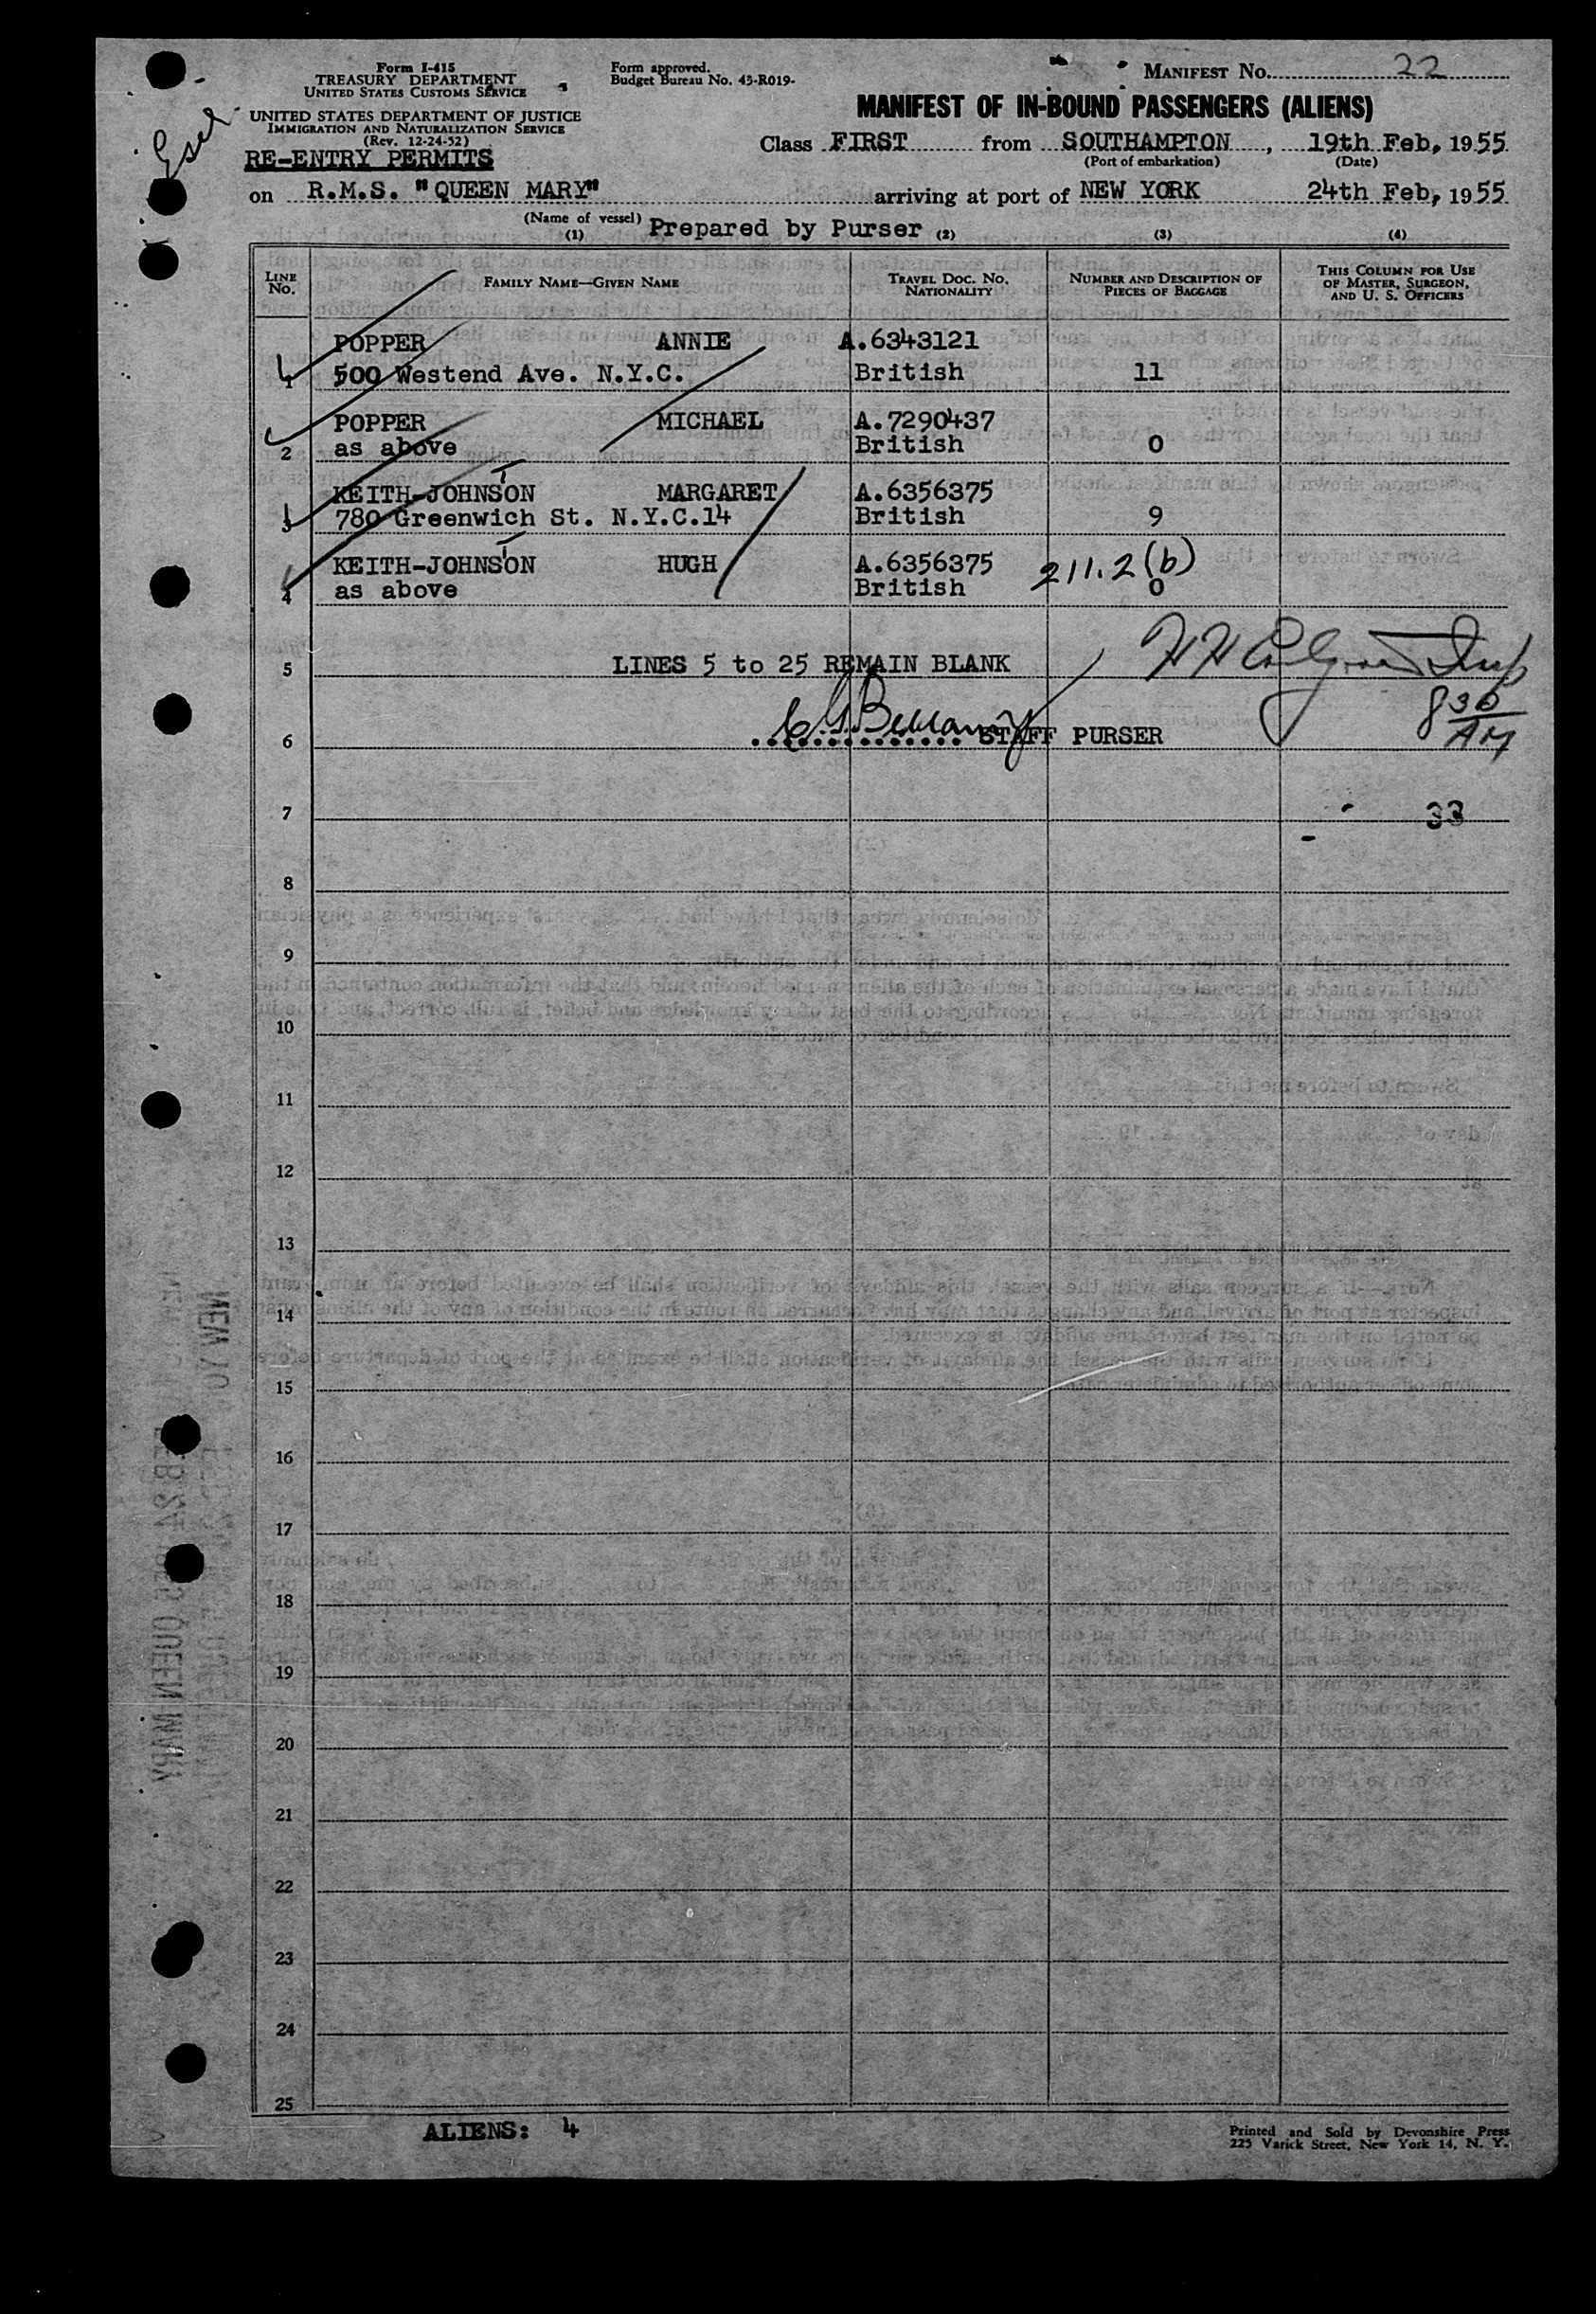 Form I-415
TREASURY DEPARTMENT
UNITED STATES CUSTOMS SERVICE
UNITED STATES DEPARTMENT OF JUSTICE
IMMIGRATION AND NATURALIZATION SERVICE
(Rev. 12-24-52)
RE-ENTRY PERMITS
Form approved.
Budget Bureau No. 43-R019-
MANIFEST No. 22
MANIFEST OF IN-BOUND PASSENGERS (ALIENS)
Class FIRST from SOUTHAMPTON, 19th Feb, 1955
(Port of embarkation) (Date)
on R.M.S. "QUEEN MARY" arriving at port of NEW YORK 24th Feb, 1955
(Name of vessel) Prepared by Purser
(1) (2) (3) (4)
LINE No. FAMILY NAME—GIVEN NAME TRAVEL DOC. NO. NATIONALITY NUMBER AND DESCRIPTION OF PIECES OF BAGGAGE THIS COLUMN FOR USE OF MASTER, SURGEON, AND U. S. OFFICERS
POPPER ANNIE A.6343121
1 500 Westend Ave. N.Y.C. British 11
POPPER MICHAEL A.7290437
2 as above British 0
KEITH-JOHNSTON MARGARET A.6356375
3 780 Greenwich St. N.Y.C.14 British 9
KEITH-JOHNSTON HUGH A.6356375 211.2(b)
4 as above British 0
5 LINES 5 to 25 REMAIN BLANK
C G Bellamy 8 30 AM
6 STAFF PURSER
7 33
8
9
10
11
12
13
14
15
16
17
18
19
20
21
22
23
24
25
ALIENS: 4
Printed and Sold by Devonshire Press
225 Varick Street, New York 14, N. Y.
QUEEN MARY